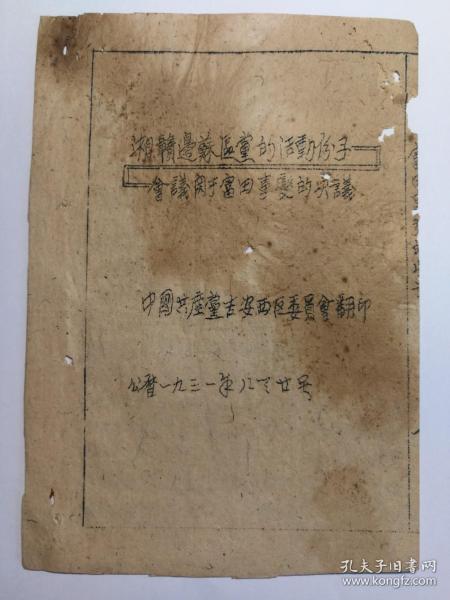 湘贛邊蘇區黨的活動份子
會議關于富田事變的决議
中國共產黨吉安西区委員會翻印
公曆一九三一年八月廿
孔夫子旧书网
www.kongfz.com